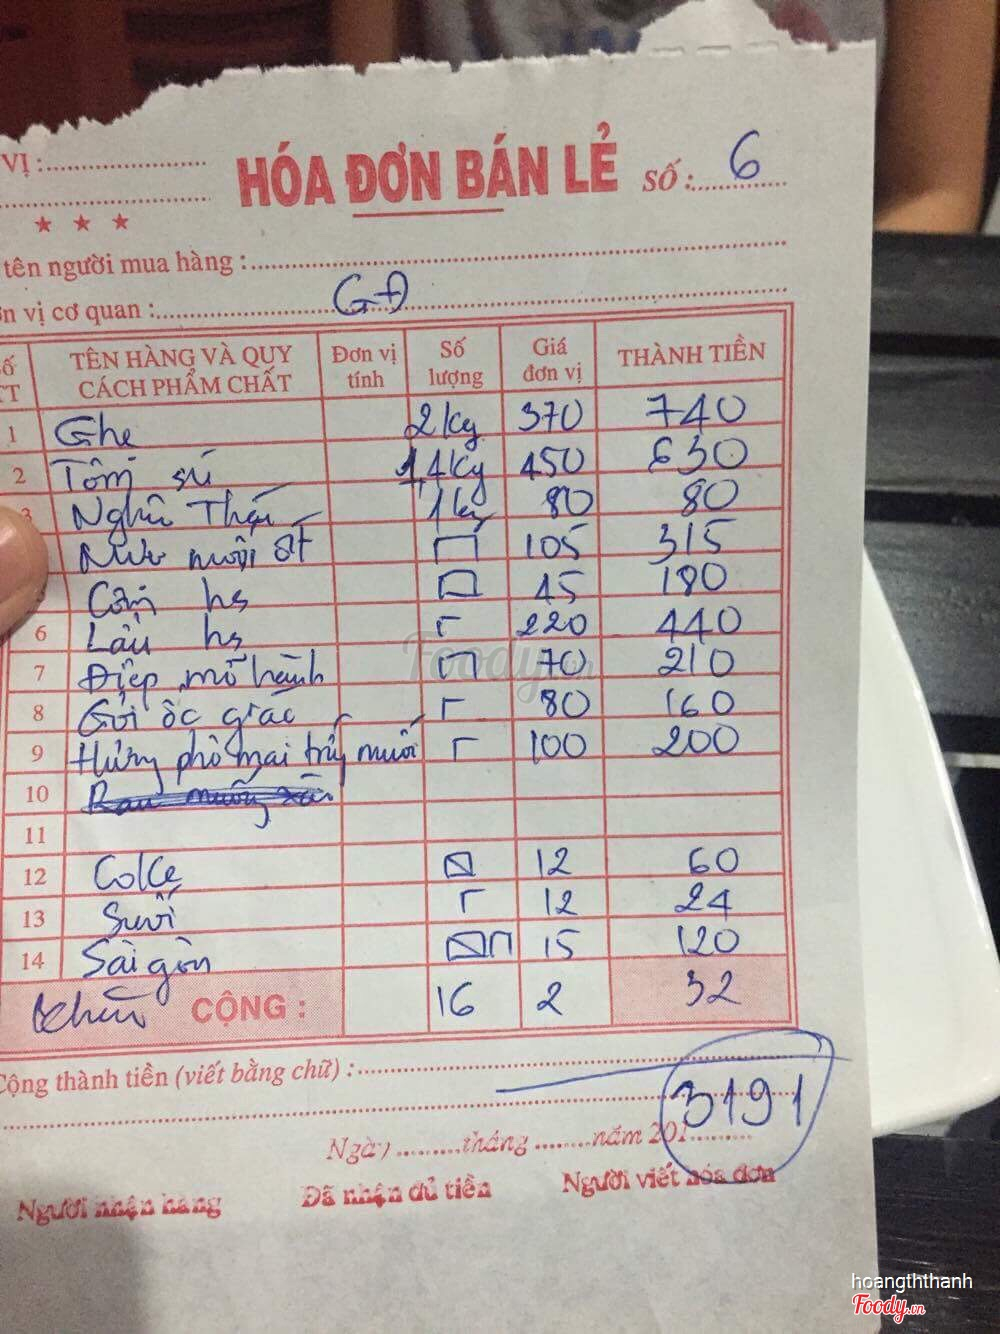 VỊ :
HÓA ĐƠN BÁN LẺ SỐ : 6
★ ★ ★
tên người mua hàng :
n vị cơ quan : GĐ
ố TT TÊN HÀNG VÀ QUY CÁCH PHẨM CHẤT Đơn vị tính Số lượng Giá đơn vị THÀNH TIỀN
1 Ghẹ 2kg 370 740
2 Tôm sú 1,4kg 450 630
3 Nghêu Thái 1kg 80 80
muối ớt 105 315
Cơm hs 45 180
6 Lẩu hs 220 440
7 Điệp mỡ hành 70 210
8 Gỏi ốc giác 80 160
9 phô mai trứng muối 100 200
10 Rau muống xào
11
12 Coke 12 60
13 Suối 12 24
14 Sài gòn 15 120
Khăn CỘNG : 16 2 32
Cộng thành tiền (viết bằng chữ) :
3191
Ngày ......... tháng ....... năm 201
Người nhận hàng Đã nhận đủ tiền Người viết hóa đơn
Foody.vn
hoangththanh
Foody.vn